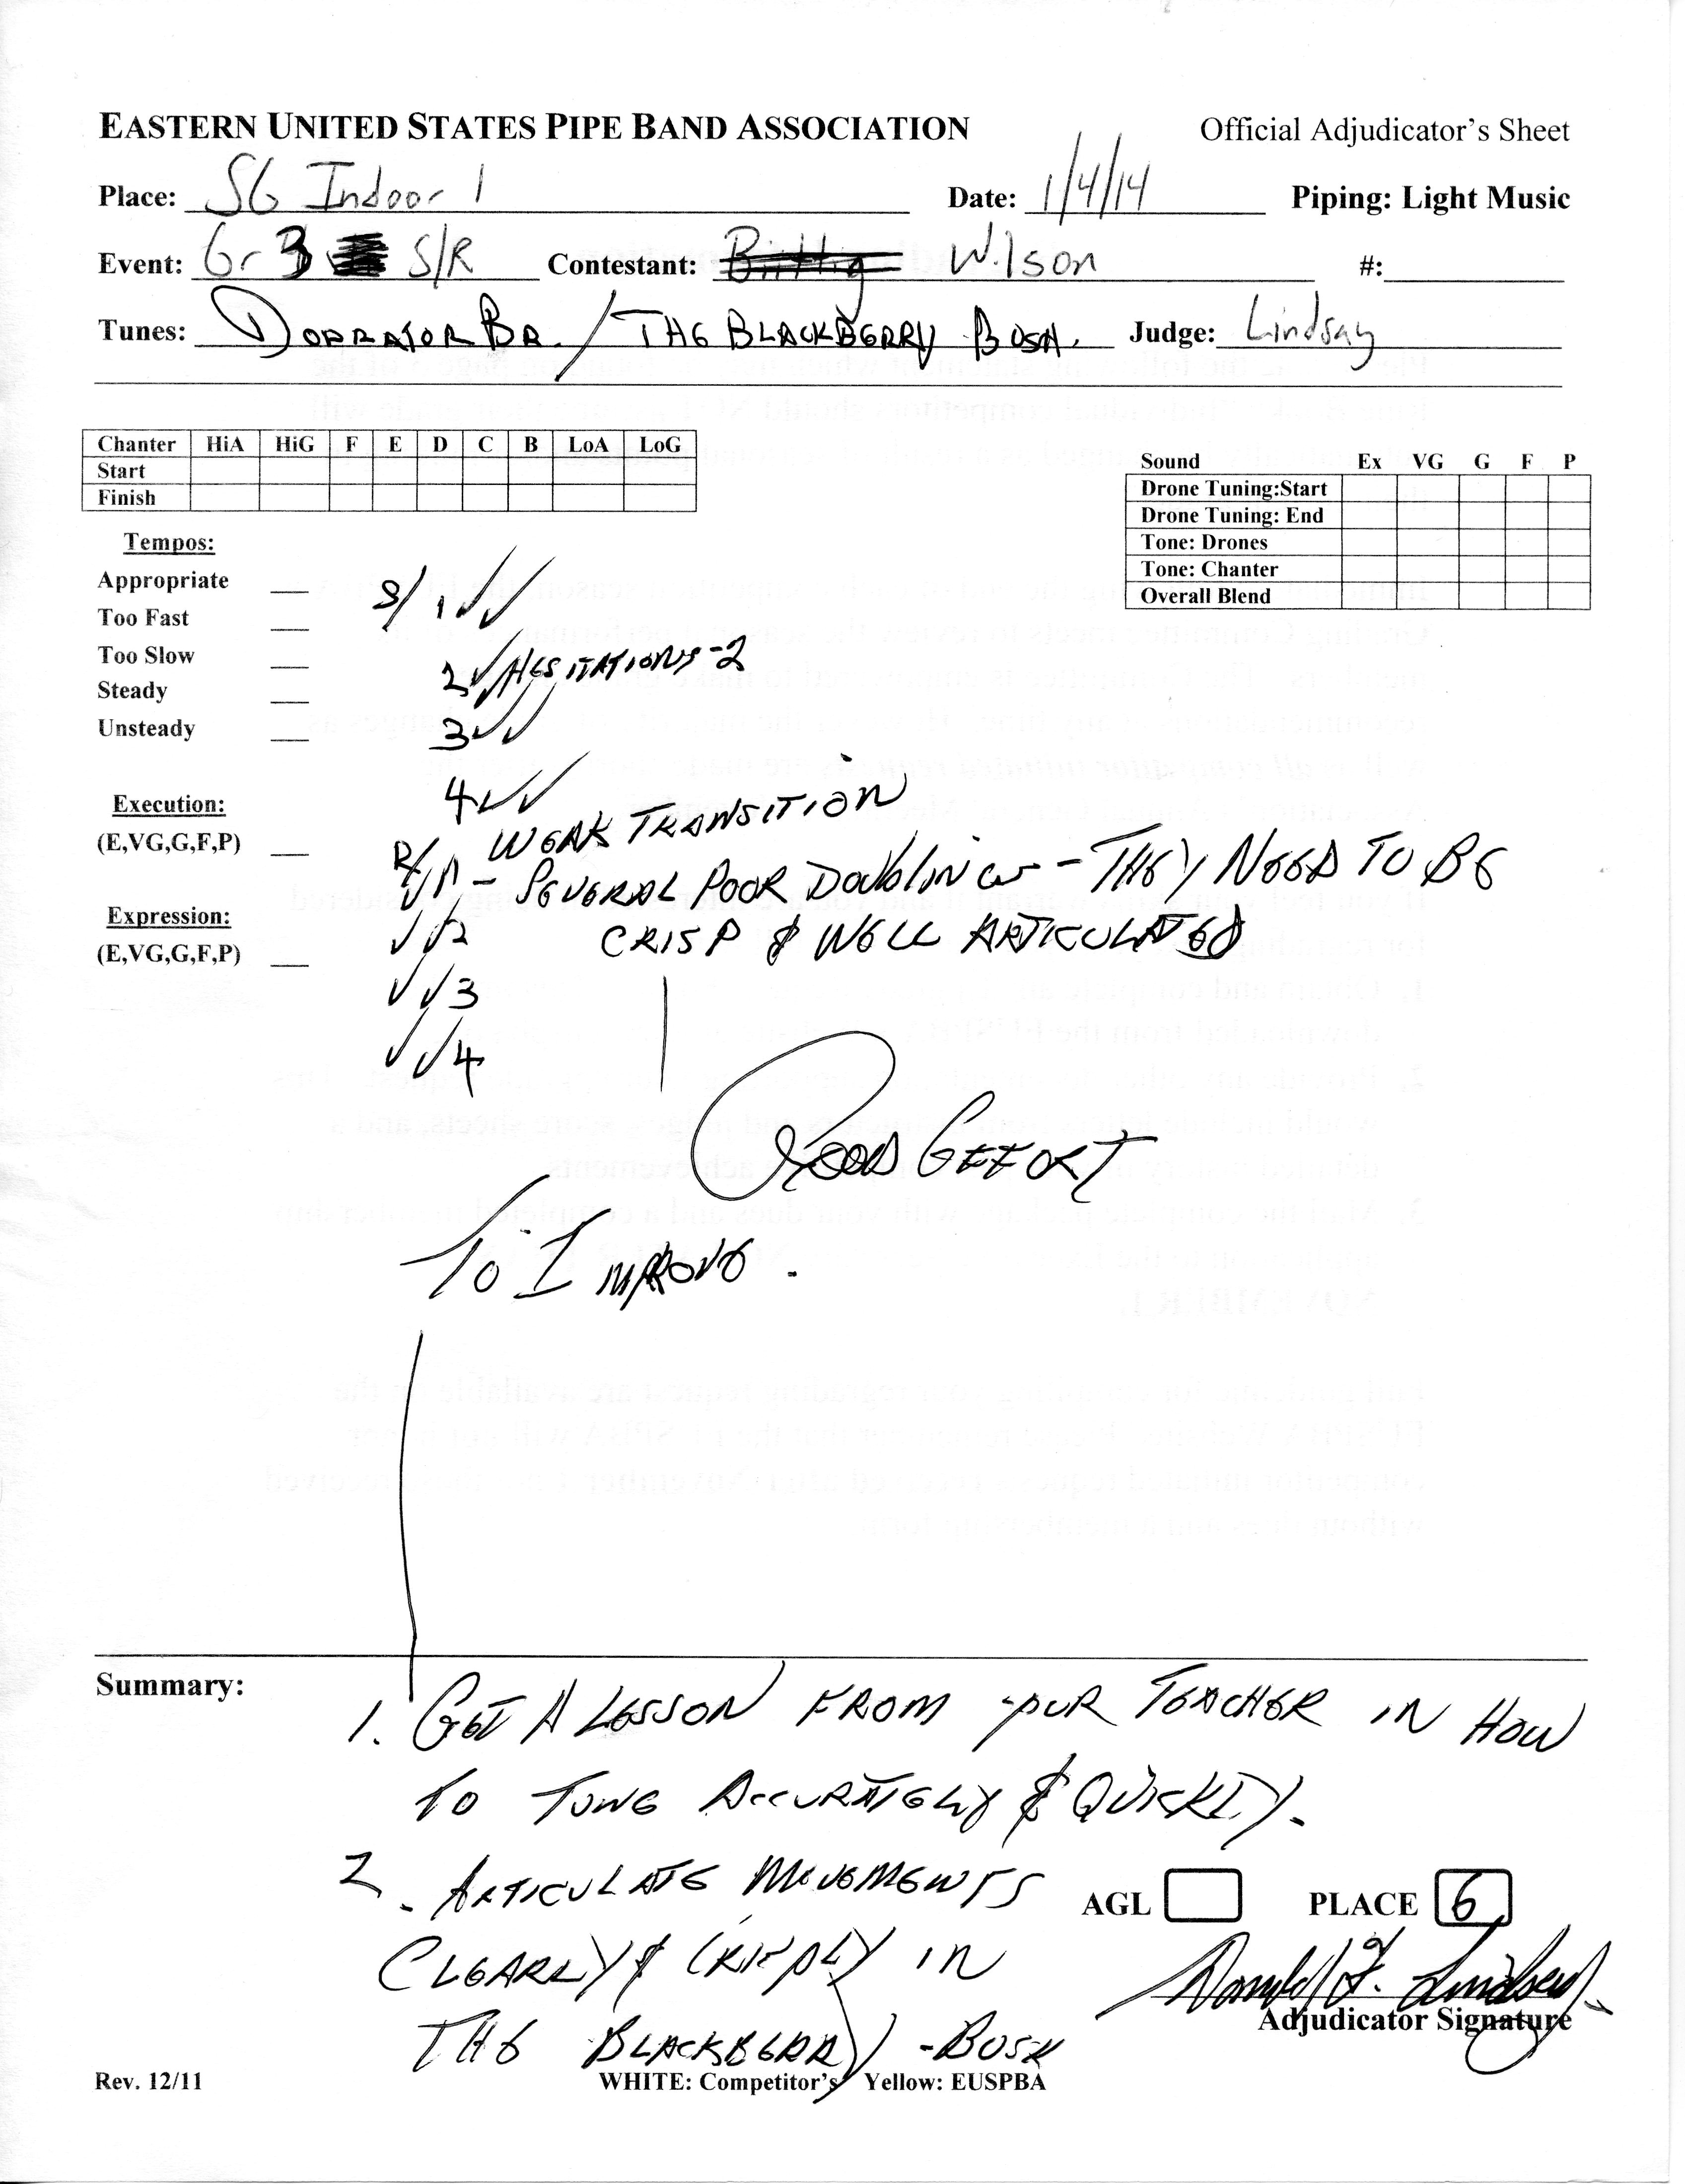 EASTERN UNITED STATES PIPE BAND ASSOCIATION Official Adjudicator's Sheet
Place: SG Indoor 1 Date: 1/4/14 Piping: Light Music
Event: Gr 3 S/R Contestant: Bittig Wilson #:
Tunes: DORRATOR BR. / THE BLACKBERRY BUSH. Judge: Lindsay
Chanter HiA HiG F E D C B LoA LoG
Start
Finish
Sound Ex VG G F P
Drone Tuning:Start
Drone Tuning: End
Tone: Drones
Tone: Chanter
Overall Blend
Tempos:
Appropriate
Too Fast
Too Slow
Steady
Unsteady
Execution:
(E,VG,G,F,P)
Expression:
(E,VG,G,F,P)
S/ 1 ✓✓
2 ✓✓ HESITATIONS-2
3 ✓✓
4 ✓✓
R/ - WEAK TRANSITION
✓✓1 - SEVERAL POOR DOUBLINGS - THEY NEED TO BE
✓✓2 CRISP & WELL ARTICULATED
✓✓3
✓✓4
GOOD EFFORT
TO IMPROVE.
Summary:
1. GET A LESSON FROM YOUR TEACHER IN HOW
TO TUNE ACCURATELY & QUICKLY.
2. ARTICULATE MOVEMENTS
CLEARLY & CRISPLY IN
THE BLACKBERRY-BUSH
AGL PLACE 6
Donald F. Lindsay
Adjudicator Signature
Rev. 12/11 WHITE: Competitor's Yellow: EUSPBA